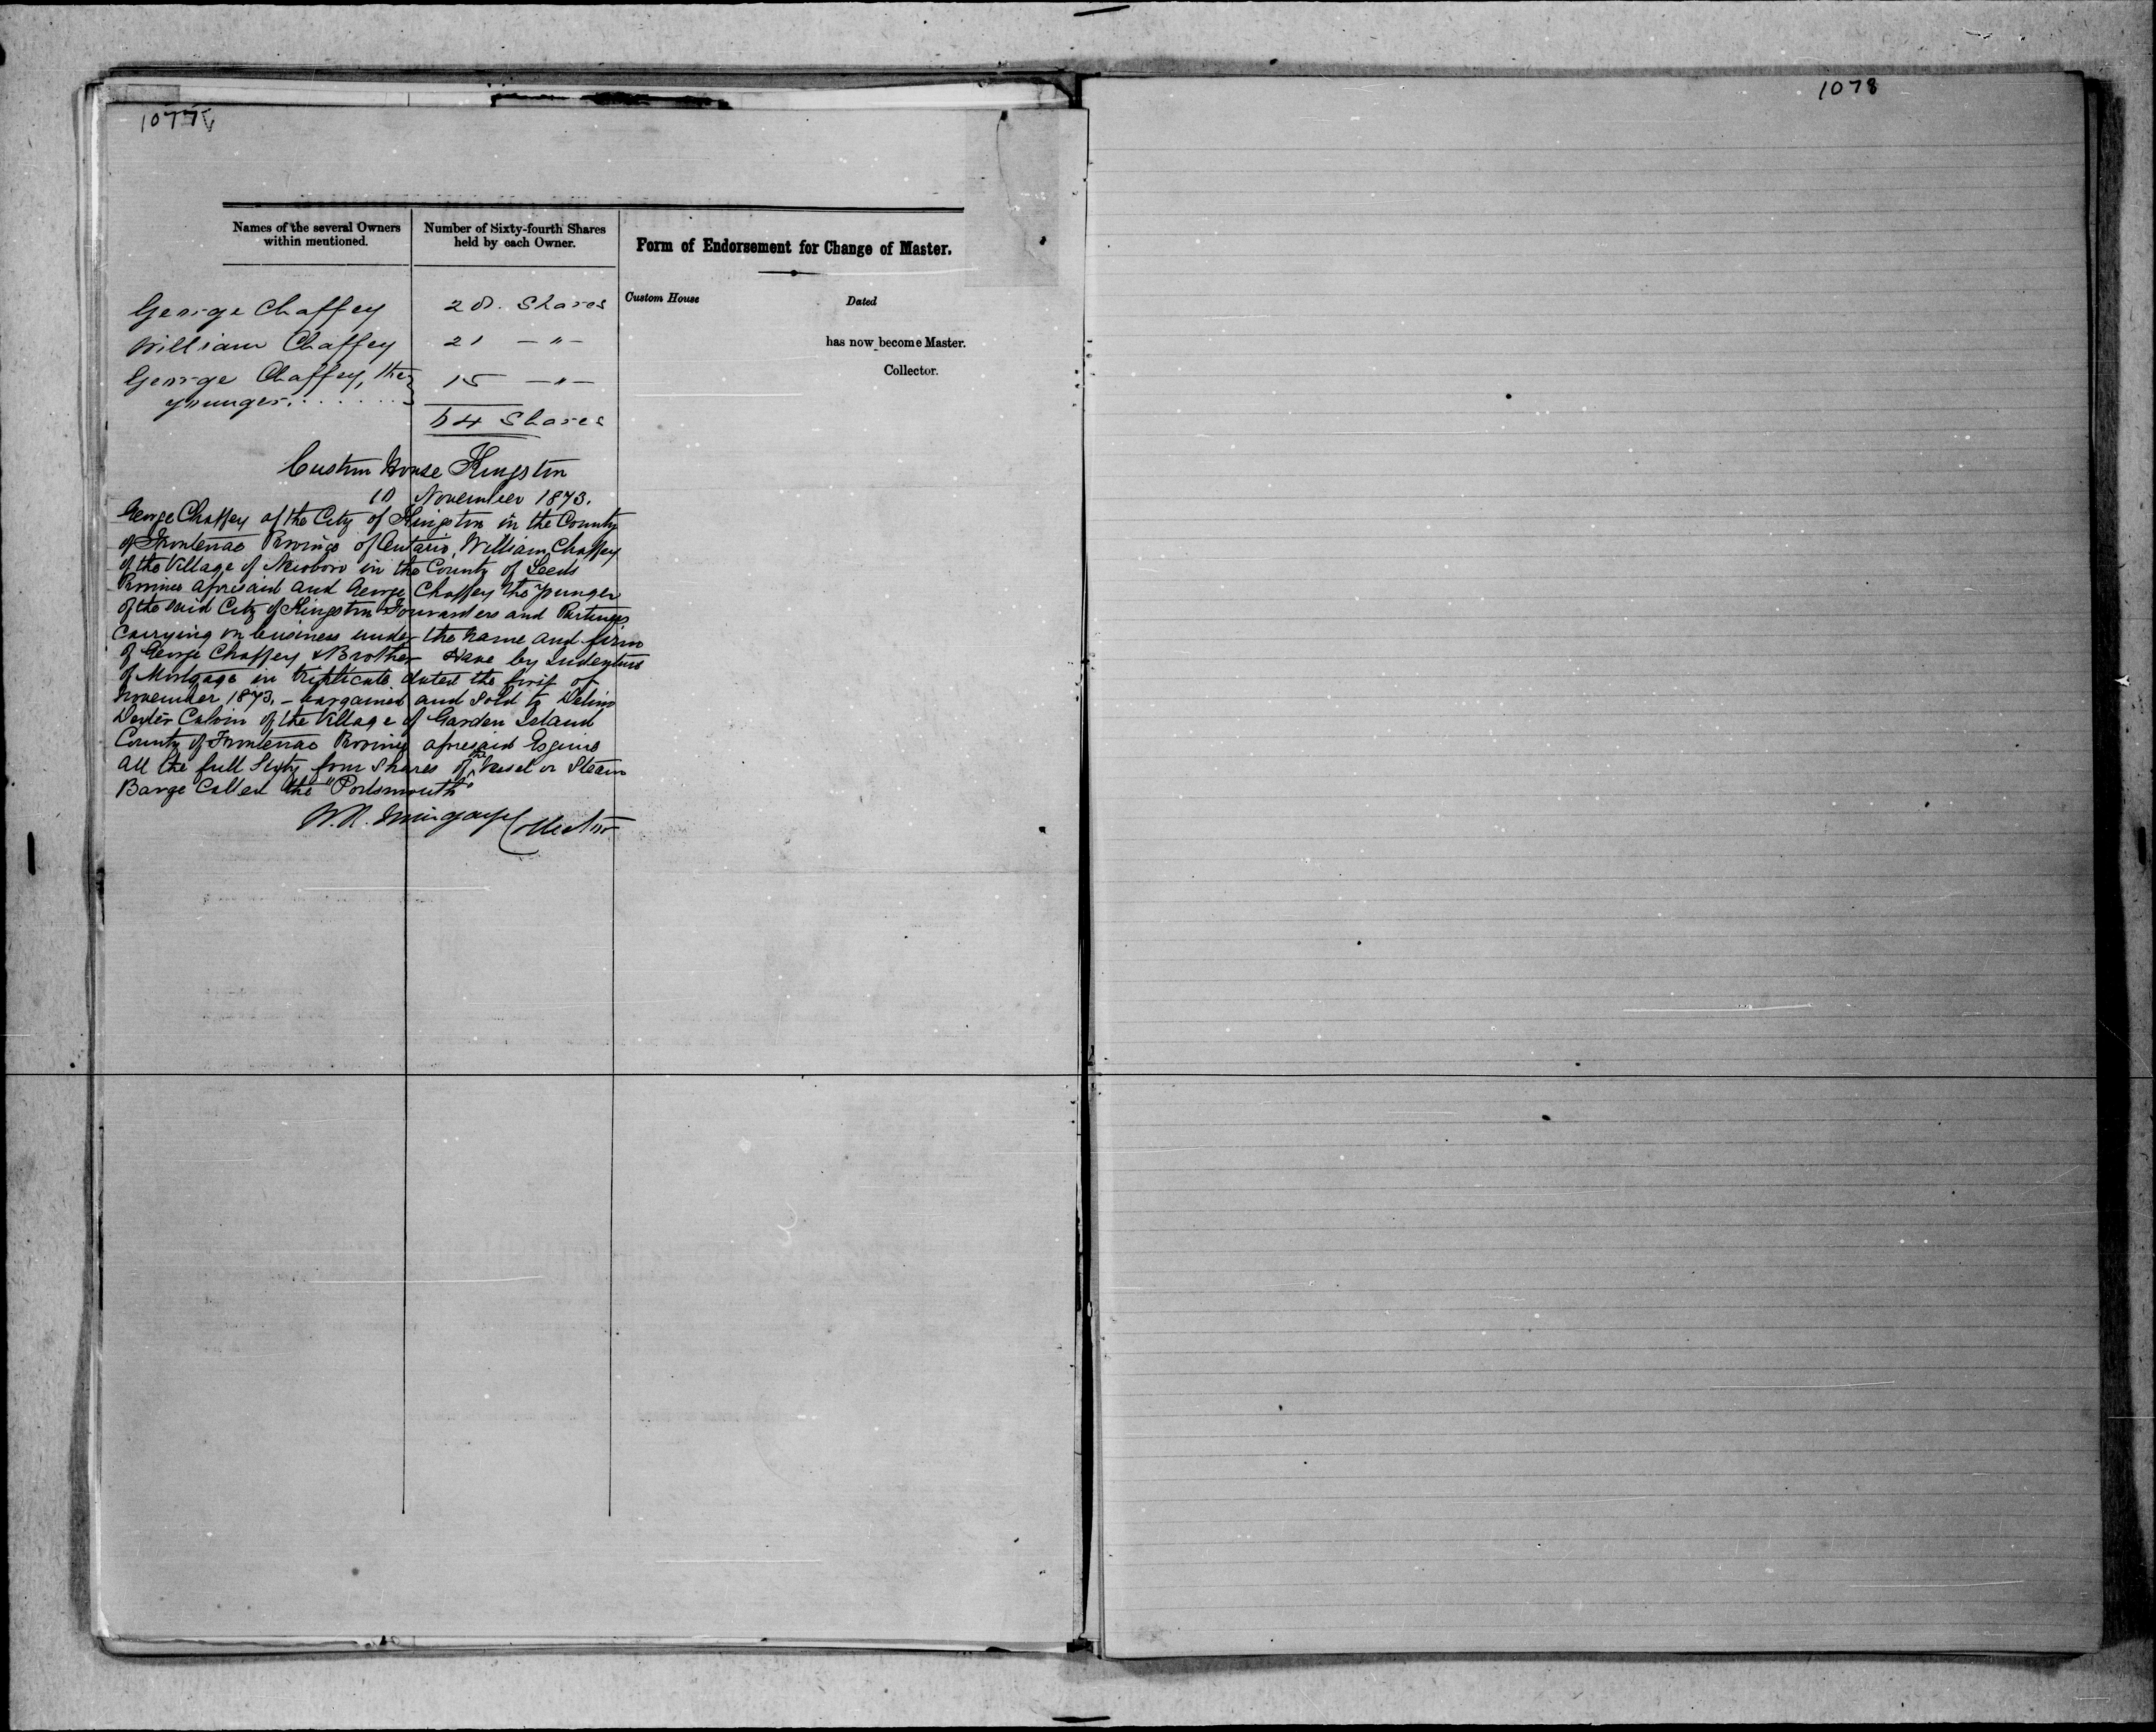 1077V
1078
Names of the several Owners within mentioned.
Number of Sixty-fourth Shares held by each Owner.
Form of Endorsement for Change of Master.
Custom House Dated
has now become Master.
Collector.
George Chaffey 28. Shares
William Chaffey 21 — " —
George Chaffey, the } 15 — " —
younger. . . . . . . }
64 Shares
Custom House Kingston
10 November 1873.
George Chaffey of the City of Kingston in the County
of Frontenac Province of Ontario, William Chaffey
of the Village of Newboro in the County of Leeds
Province aforesaid and George Chaffey the younger
of the said City of Kingston Forwarders and Partners
Carrying on business under the name and firm
of George Chaffey & Brother Have by Indenture
of Mortgage in triplicate dated the first of
November 1873, - bargained and Sold to Delino
Dexter Calvin of the Village of Garden Island
County of Frontenac Province aforesaid Esquire
All the full Sixty four Shares of the Vessel or Steam
Barge Called the "Portsmouth"
Collector